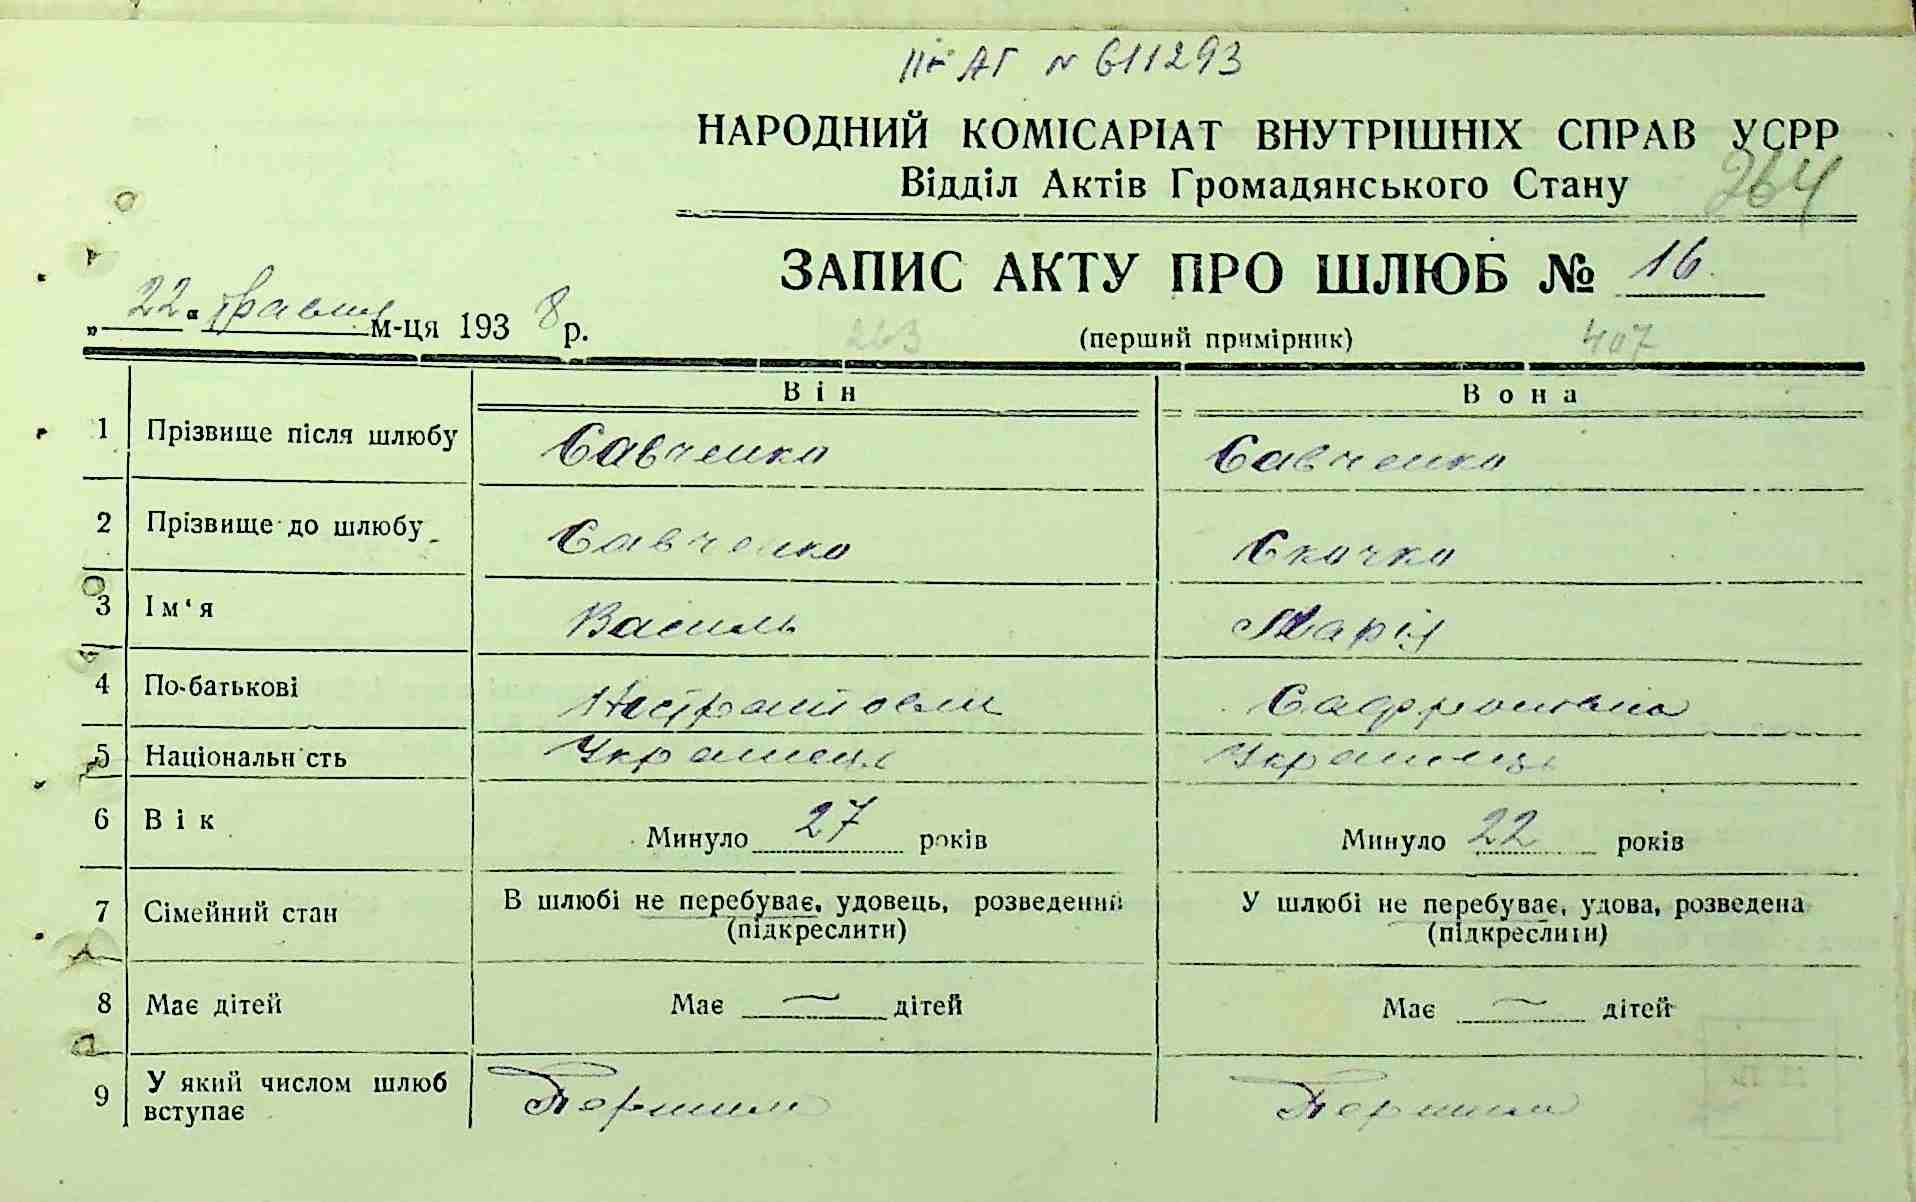 ІІ-АГ № 611293
НАРОДНИЙ КОМІСАРІАТ ВНУТРІШНІХ СПРАВ УСРР
Відділ Актів Громадянського Стану 264
ЗАПИС АКТУ ПРО ШЛЮБ № 16
„22“ травня м-ця 1938 р.
263 (перший примірник) 407
Він Вона
1 Прізвище після шлюбу Савченко Савченко
2 Прізвище до шлюбу Савченко Скочко
3 Ім‘я Василь Марія
4 По-батькові Сафроновна
5 Національн сть Українець Українець
6 Вік Минуло 27 років Минуло 22 років
7 Сімейний стан В шлюбі не перебуває, удовець, розведений У шлюбі не перебуває, удова, розведена
(підкреслити) (підкреслити)
8 Має дітей Має — дітей Має — дітей
9 У який числом шлюб вступає Першим Першим